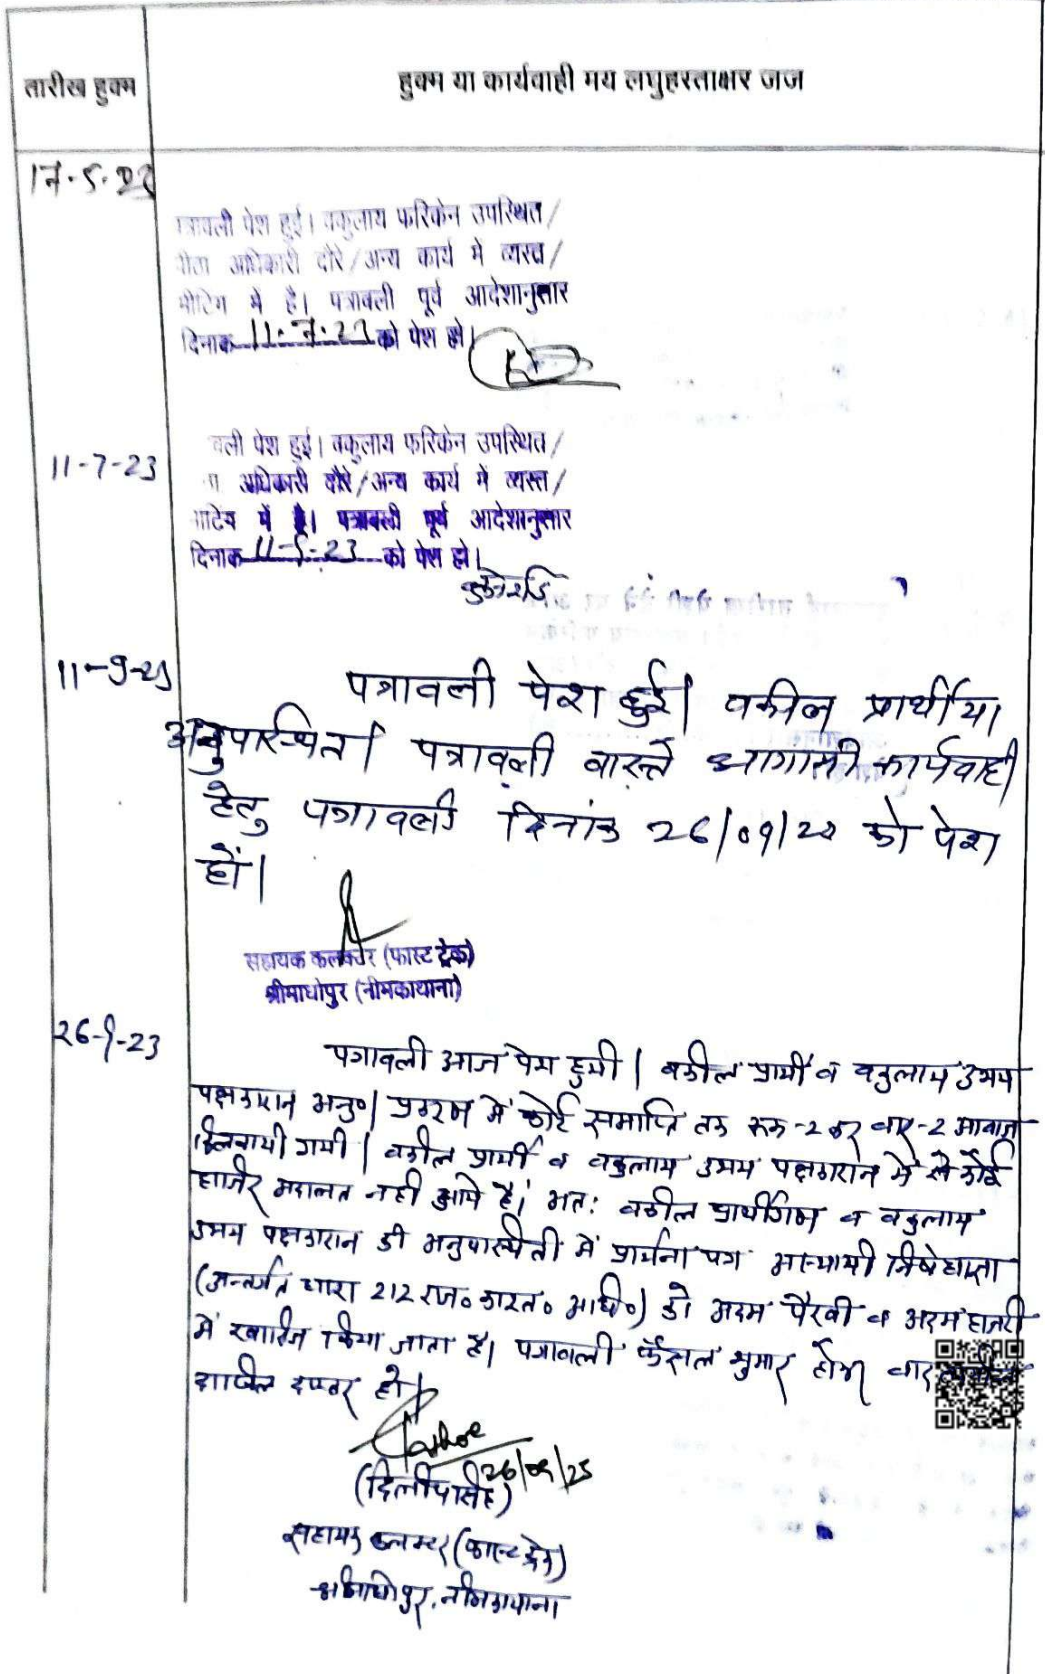 तारीख हुक्म
हुक्म या कार्यवाही मय लघुहस्ताक्षर जज
17-5-23
त्रावली पेश हुई। वकुलाय फरिकेन उपस्थित/
अधिकारी दौरे/अन्य कार्य में व्यस्त/
मीटिंग में है। पत्रावली पूर्व आदेशानुसार
दिनांक 11-7-23 को पेश हो।
11-7-23
वली पेश हुई। वकुलाय फरिकेन उपस्थित/
अधिकारी दौरे/अन्य कार्य में व्यस्त/
में है। पत्रावली पूर्व आदेशानुसार
दिनांक को पेश हो।
11-9-23
पत्रावली पेश हुई। वकील प्रार्थीया
अनुपस्थित। पत्रावली वास्ते आगामी कार्यवाही
हेतु पत्रावली दिनांक 26/09/23 को पेश
हों।
सहायक कलक्टर (फास्ट ट्रेक)
श्रीमाधोपुर (नीमकाथाना)
26-9-23
पत्रावली आज पेश हुयी। वकील प्रार्थी व वकुलाय उभय
पक्षकारान अनु०। प्रकरण में कोर्ट समाप्ति तक रूक-2 कर बार-2 आवाज
दिलवायी गयी। वकील प्रार्थी व वकुलाय उभय पक्षकारान में से कोई
हाजिर अदालत नही आये है। अतः वकील प्रार्थीगण व वकुलाय
उभय पक्षकारान की अनुपस्थिती में प्रार्थना पत्र अस्थायी निषेधाज्ञा
(अन्तर्गत धारा 212 राज० काश्त० अधि०) को अदम पैरवी व अदम हाजरी
में खारिज किया जाता है। पत्रावली फैसल शुमार होकर बाद
दाखिल दफ्तर हो।
26/09/23
(दिलीपसिंह)
सहायक कलक्टर (फास्ट ट्रेक)
श्रीमाधोपुर, नीमकाथाना